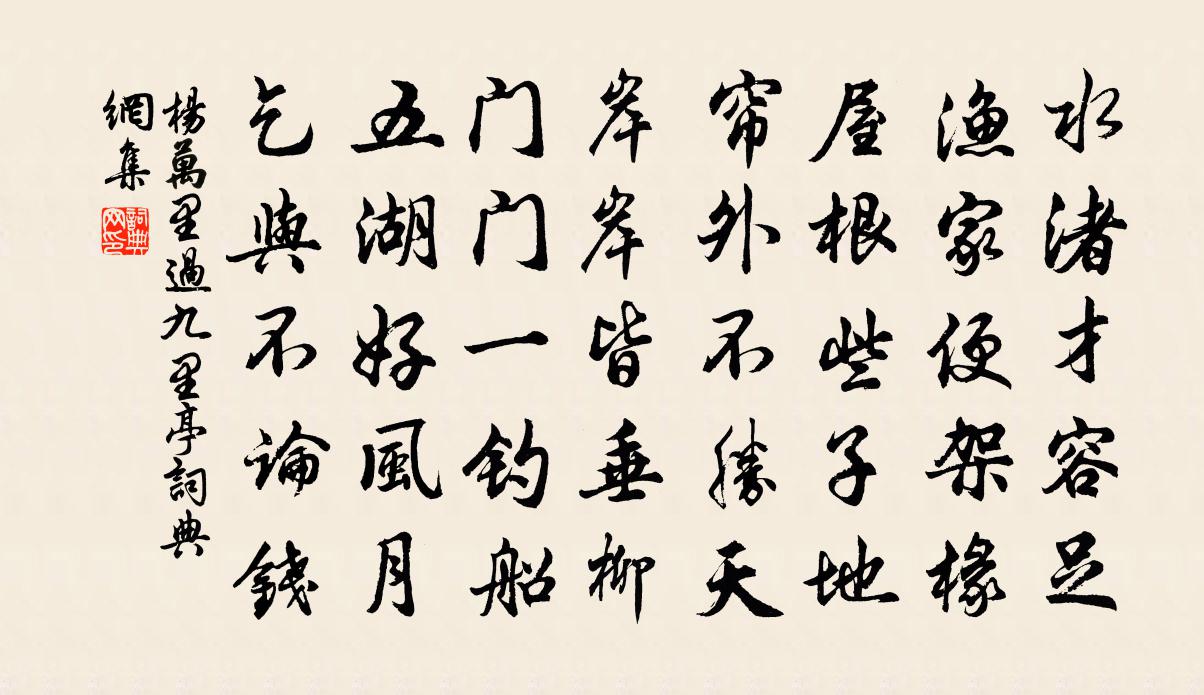 水渚才容足
漁家便架椽
屋根些子地
帘外不勝天
岸岸皆垂柳
门门一钓船
五湖好風月
乞與不論錢
楊萬里過九里亭詞典
網集
詞典
网印